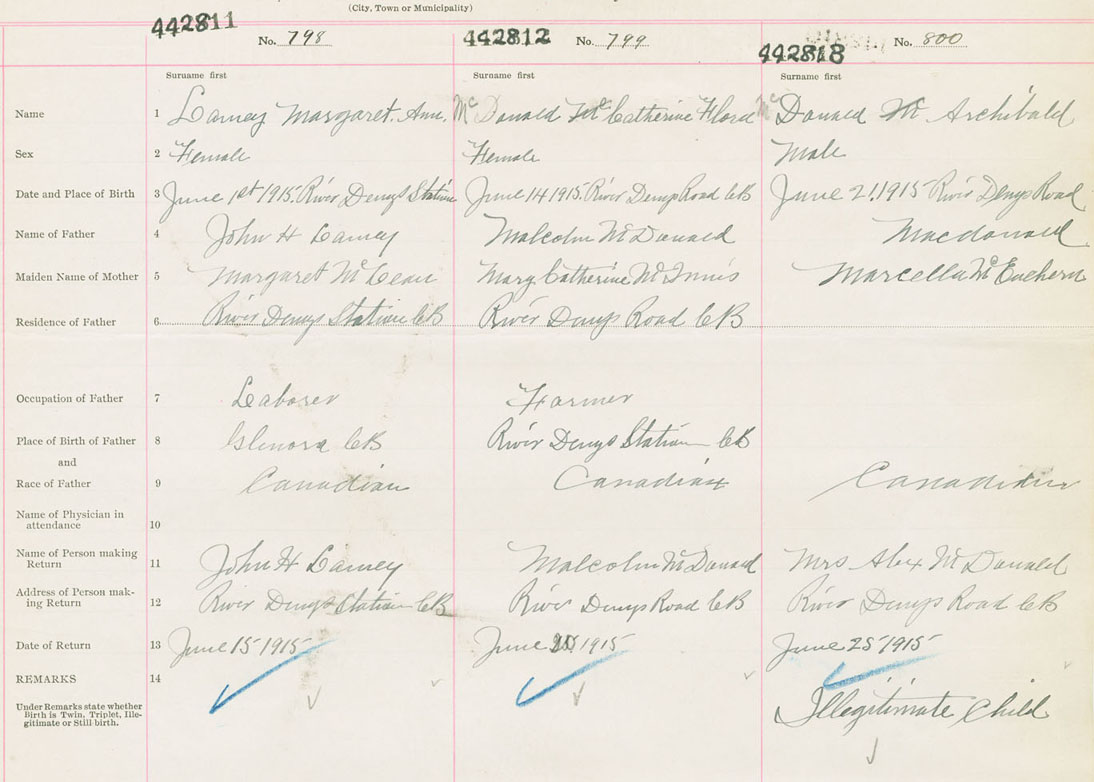 (City, Town or Municipality)
442811 No. 798 442812 No. 799 442813 No. 800
Surname first Surname first Surname first
Name 1 Lamey Margaret. Ann. Mc Donald Mc Catherine Flora Mc Donald Mc Archibald
Sex 2 Female Female Male
Date and Place of Birth 3 June 1st 1915. River Denys Station June 14 1915. River Denys Road CB June 21. 1915 River Denys Road
Name of Father 4 John H Lamey Malcolm McDonald Macdonald
Maiden Name of Mother 5 Margaret McLean Mary Catherine McInnis Marcella McEachern
Residence of Father 6 River Denys Station CB River Denys Road CB
Occupation of Father 7 Laborer Farmer
Place of Birth of Father 8 Glenora CB River Denys Station CB
and
Race of Father 9 Canadian Canadian Canadian
Name of Physician in
attendance 10
Name of Person making
Return 11 John H Lamey Malcolm McDonald Mrs Alex McDonald
Address of Person mak-
ing Return 12 River Denys Station CB River Denys Road CB River Denys Road CB
Date of Return 13 June 15 1915 June 1915 June 25 1915
REMARKS 14
Under Remarks state whether
Birth is Twin, Triplet, Ille-
gitimate or Still-birth. Illegitimate Child